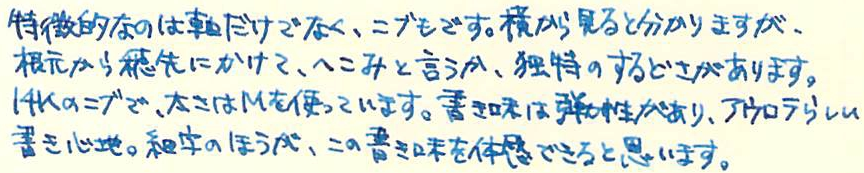 特徴的なのは軸だけでなく、ニブもです。横から見ると分かりますが、
根元から穂先にかけて、へこみと言うか、独特のするどさがあります。
14Kのニブで、太さはMを使っています。書き味は弾力性があり、アウロラらしい
書き心地。細字のほうが、この書き味を体感できると思います。